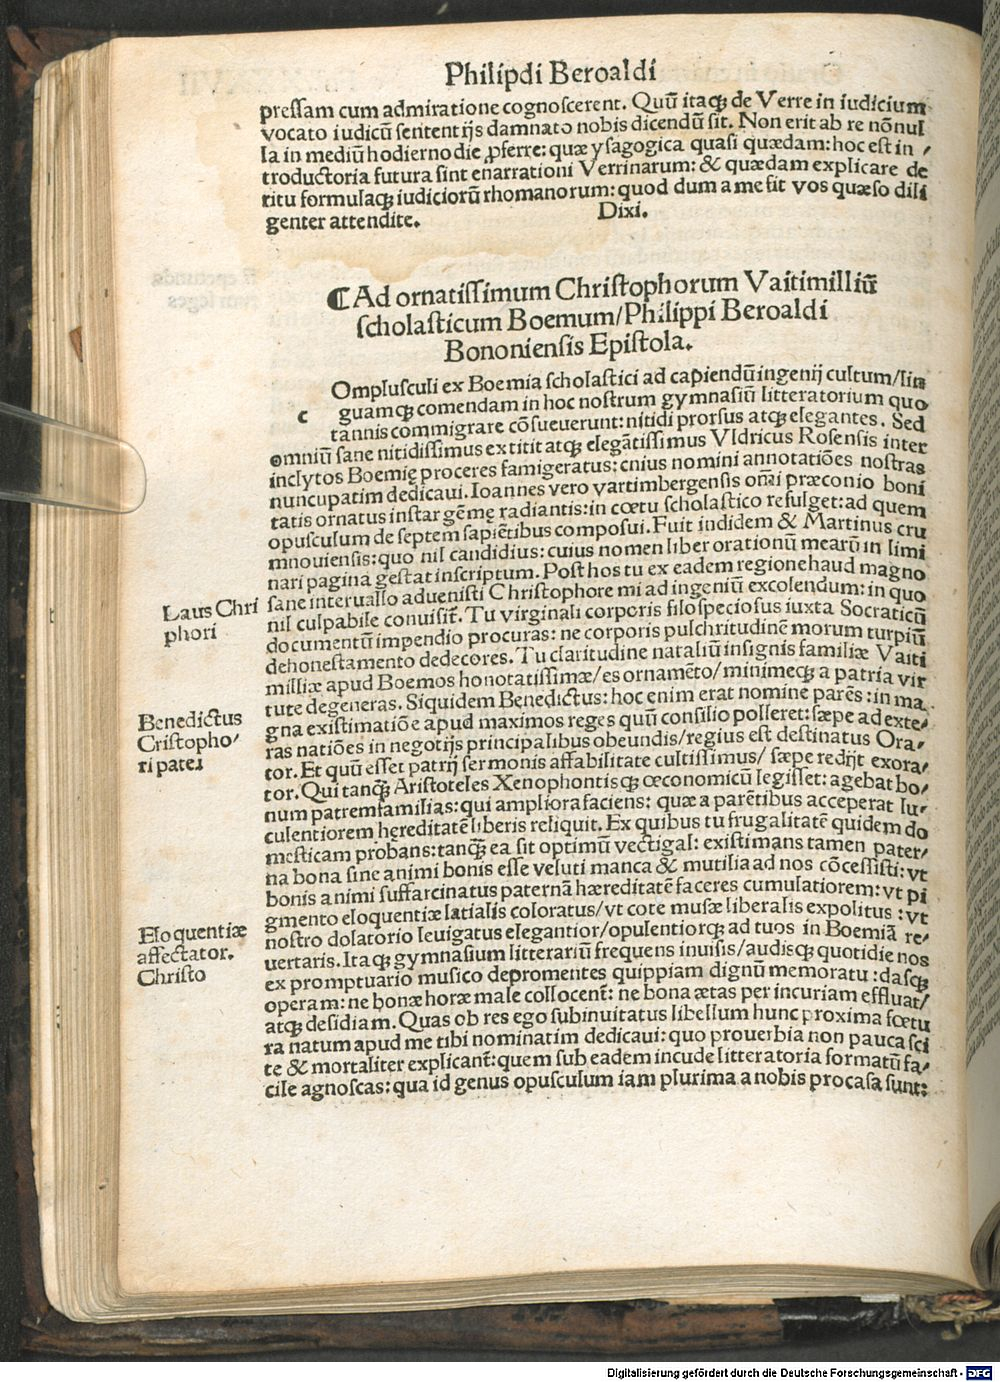 Philipdi Beroaldi
pressam cum admiratione cognoscerent. Quū itaqꝫ de Verre in iudicium
vocato iudicū sententijs damnato nobis dicendū sit. Non erit ab re nōnul
la in mediū hodierno die ꝓferre: quæ ysagogica quasi quædam: hoc est in /
troductoria futura sint enarrationi Verrinarum: & quædam explicare de
ritu formulaqꝫ iudiciorū rhomanorum: quod dum a me fit vos quæso dili
genter attendite. Dixi.
⸿Ad ornatissimum Christophorum Vaitimilliū
scholasticum Boemum/Philippi Beroaldi
Bononiensis Epistola.
c Omplusculi ex Boemia scholastici ad capiendū ingenij cultum/lin
guamqꝫ comendam in hoc nostrum gymnasiū litteratorium quo
tannis commigrare cōsueuerunt: nitidi prorsus atqꝫ elegantes. Sed
omniū sane nitidissimus extitit atqꝫ elegātissimus Vldricus Rosensis inter
inclytos Boemię proceres famigeratus: cnius nomini annotatiões nostras
nuncupatim dedicaui. Ioannes vero vartimbergensis om̄i præconio boni
tatis ornatus instar gēmę radiantis: in cœtu scholastico refulget: ad quem
opusculum de septem sapiētibus composui. Fuit indidem & Martinus cru
mnouiensis: quo nil candidius: cuius nomen liber orationū mearū in limi
nari pagina gestat inscriptum. Post hos tu ex eadem regione haud magno
sane interuallo aduenisti Christophore mi ad ingeniū excolendum: in quo
Laus Chri
phori
nil culpabile conuisit̄. Tu virginali corporis filo speciosus iuxta Socraticū
documentū impendio procuras: ne corporis pulchritudinē morum turpiū
dehonestamento dedecores. Tu claritudine nataliū insignis familiæ Vaiti
milliæ apud Boemos honotatissimæ/es ornamēto/minimeqꝫ a patria vir
tute degeneras. Siquidem Benedictus: hoc enim erat nomine parēs: in ma
Benedictus
Cristopho/
ri pater
gna existimatiōe apud maximos reges quū consilio polleret: sæpe ad exte/
ras natiões in negotijs principalibus obeundis/regius est destinatus Ora/
tor. Et quū esset patrij sermonis affabilitate cultissimus/ sæpe redijt exora/
tor. Qui tanqꝫ Aristoteles Xenophontisqꝫ œconomicū legisset: agebat bo/
num patremfamilias: qui ampliora faciens: quæ a parētibus acceperat lu/
culentiorem hereditatē liberis reliquit. Ex quibus tu frugalitatē quidem do
mesticam probans: tanqꝫ ea sit optimū vectigal: existimans tamen pater/
na bona sine animi bonis esse veluti manca & mutilia ad nos cōcessisti: vt
bonis animi suffarcinatus paternā hæreditatē faceres cumulatiorem: vt pi
gmento eloquentiæ latialis coloratus/vt cote musæ liberalis expolitus : vt
Eloquentiæ
affectator.
Christo
nostro dolatorio leuigatus elegantior/opulentiorqꝫ ad tuos in Boemiā re/
uertaris. Itaqꝫ gymnasium litterariū frequens inuisis/audisqꝫ quotidie nos
ex promptuario musico depromentes quippiam dignū memoratu : dasqꝫ
operam: ne bonæ horæ male collocent̄: ne bona ætas per incuriam effluat/
atqꝫ desidiam. Quas ob res ego subinuitatus libellum hunc proxima fœtu
ra natum apud me tibi nominatim dedicaui: quo prouerbia non pauca sci
te & mortaliter explicant̄: quem sub eadem incude litteratoria formatū fa/
cile agnoscas: qua id genus opusculum iam plurima a nobis procusa sunt:
Digitalisierung gefördert durch die Deutsche Forschungsgemeinschaft - DFG